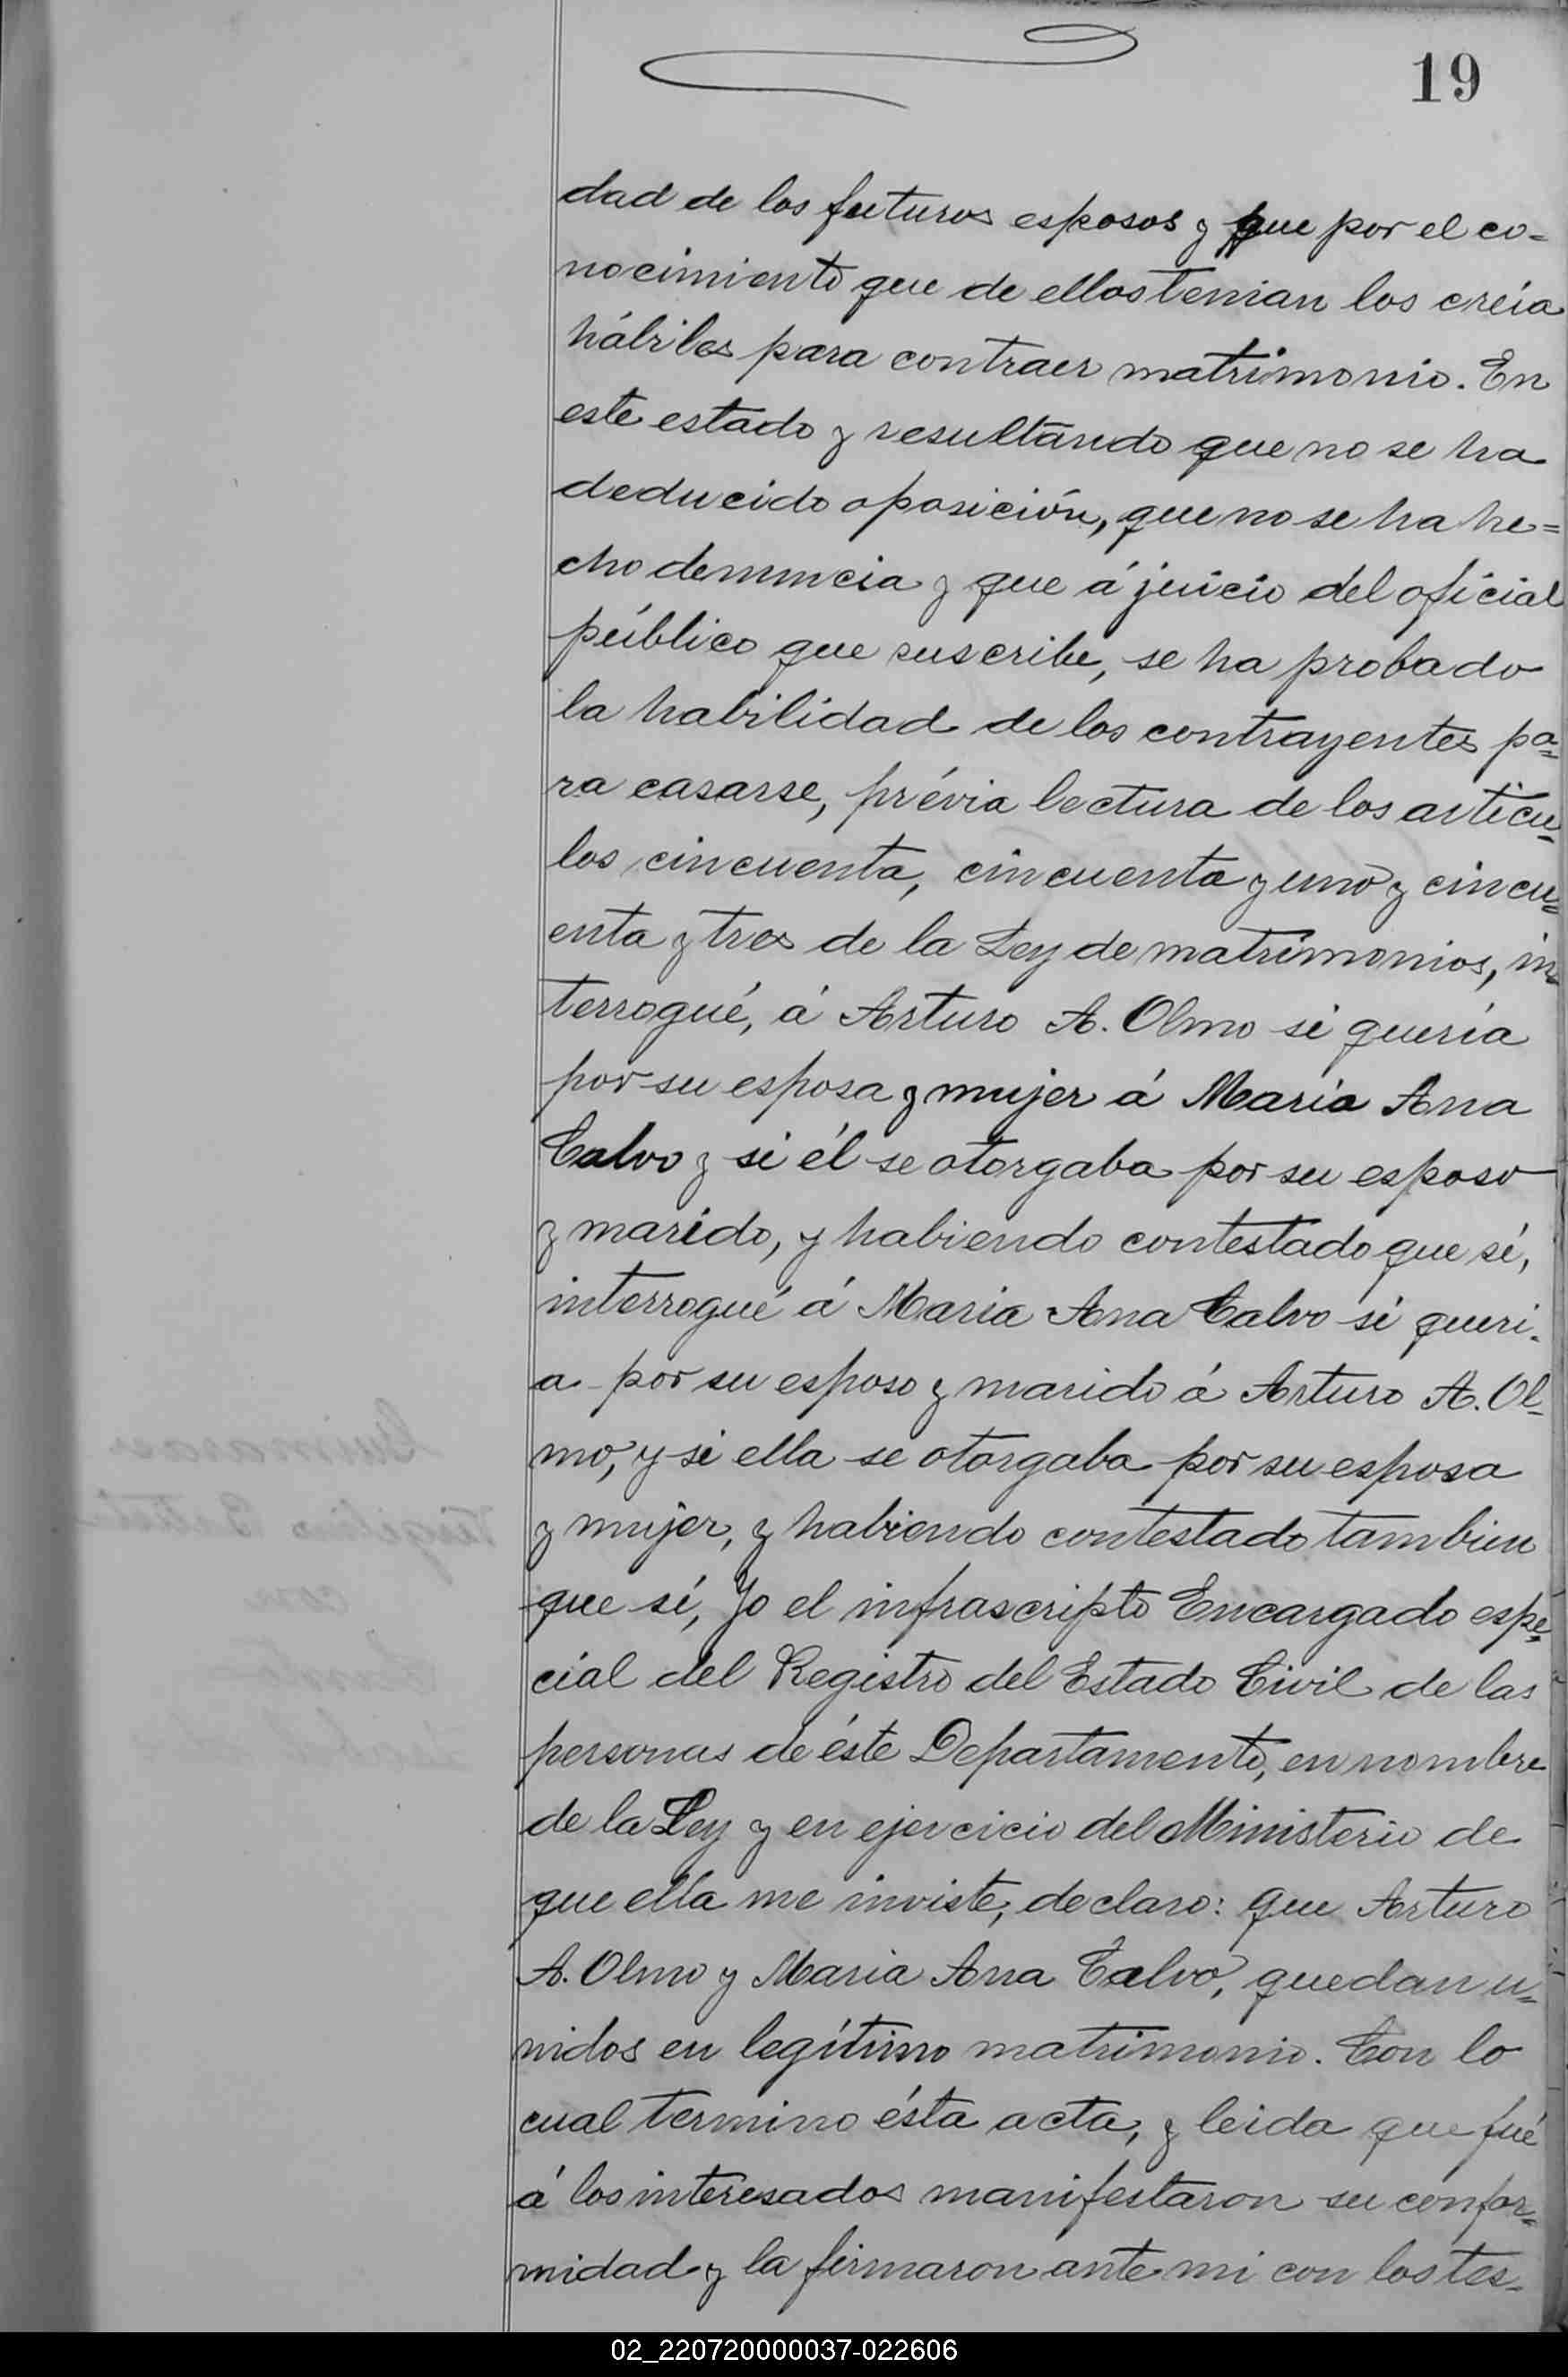 19
dad de los futuros esposos y que por el co=
nocimiento que de ellos tenian los creía
hábiles para contraer matrimonio. En
este estado y resultando que no se ha
deducido oposición, que no se ha he=
cho denuncia y que á juicio del oficial
público que suscribe, se ha probado
la habilidad de los contrayentes pa=
ra casarse, prévia lectura de los articu=
los cincuenta, cincuenta y uno y cincu=
enta y tres de la Ley de matrimonios, in=
terrogué, á Arturo A. Olmo si quería
por su esposa y mujer á Maria Ana
Calvo y si él se otorgaba por su esposo
y marido, y habiendo contestado que sí,
interrogué á Maria Ana Calvo si queri-
a por su esposo y marido á Arturo A. Ol-
mo, y si ella se otorgaba por su esposa
y mujer, y habiendo contestado tambien
que sí, Yo el infrascripto Encargado espe=
cial del Registro del Estado Civil de las
personas de éste Departamento, en nombre
de la Ley y en ejercicio del Ministerio de
que ella me inviste, declaro: que Arturo
A. Olmo y Maria Ana Calvo, quedan u=
nidos en legítimo matrimonio. Con lo
cual termino ésta acta, y leida que fué
á los interesados manifestaron su confor=
midad y la firmaron ante mi con los tes-
02_220720000037-022606